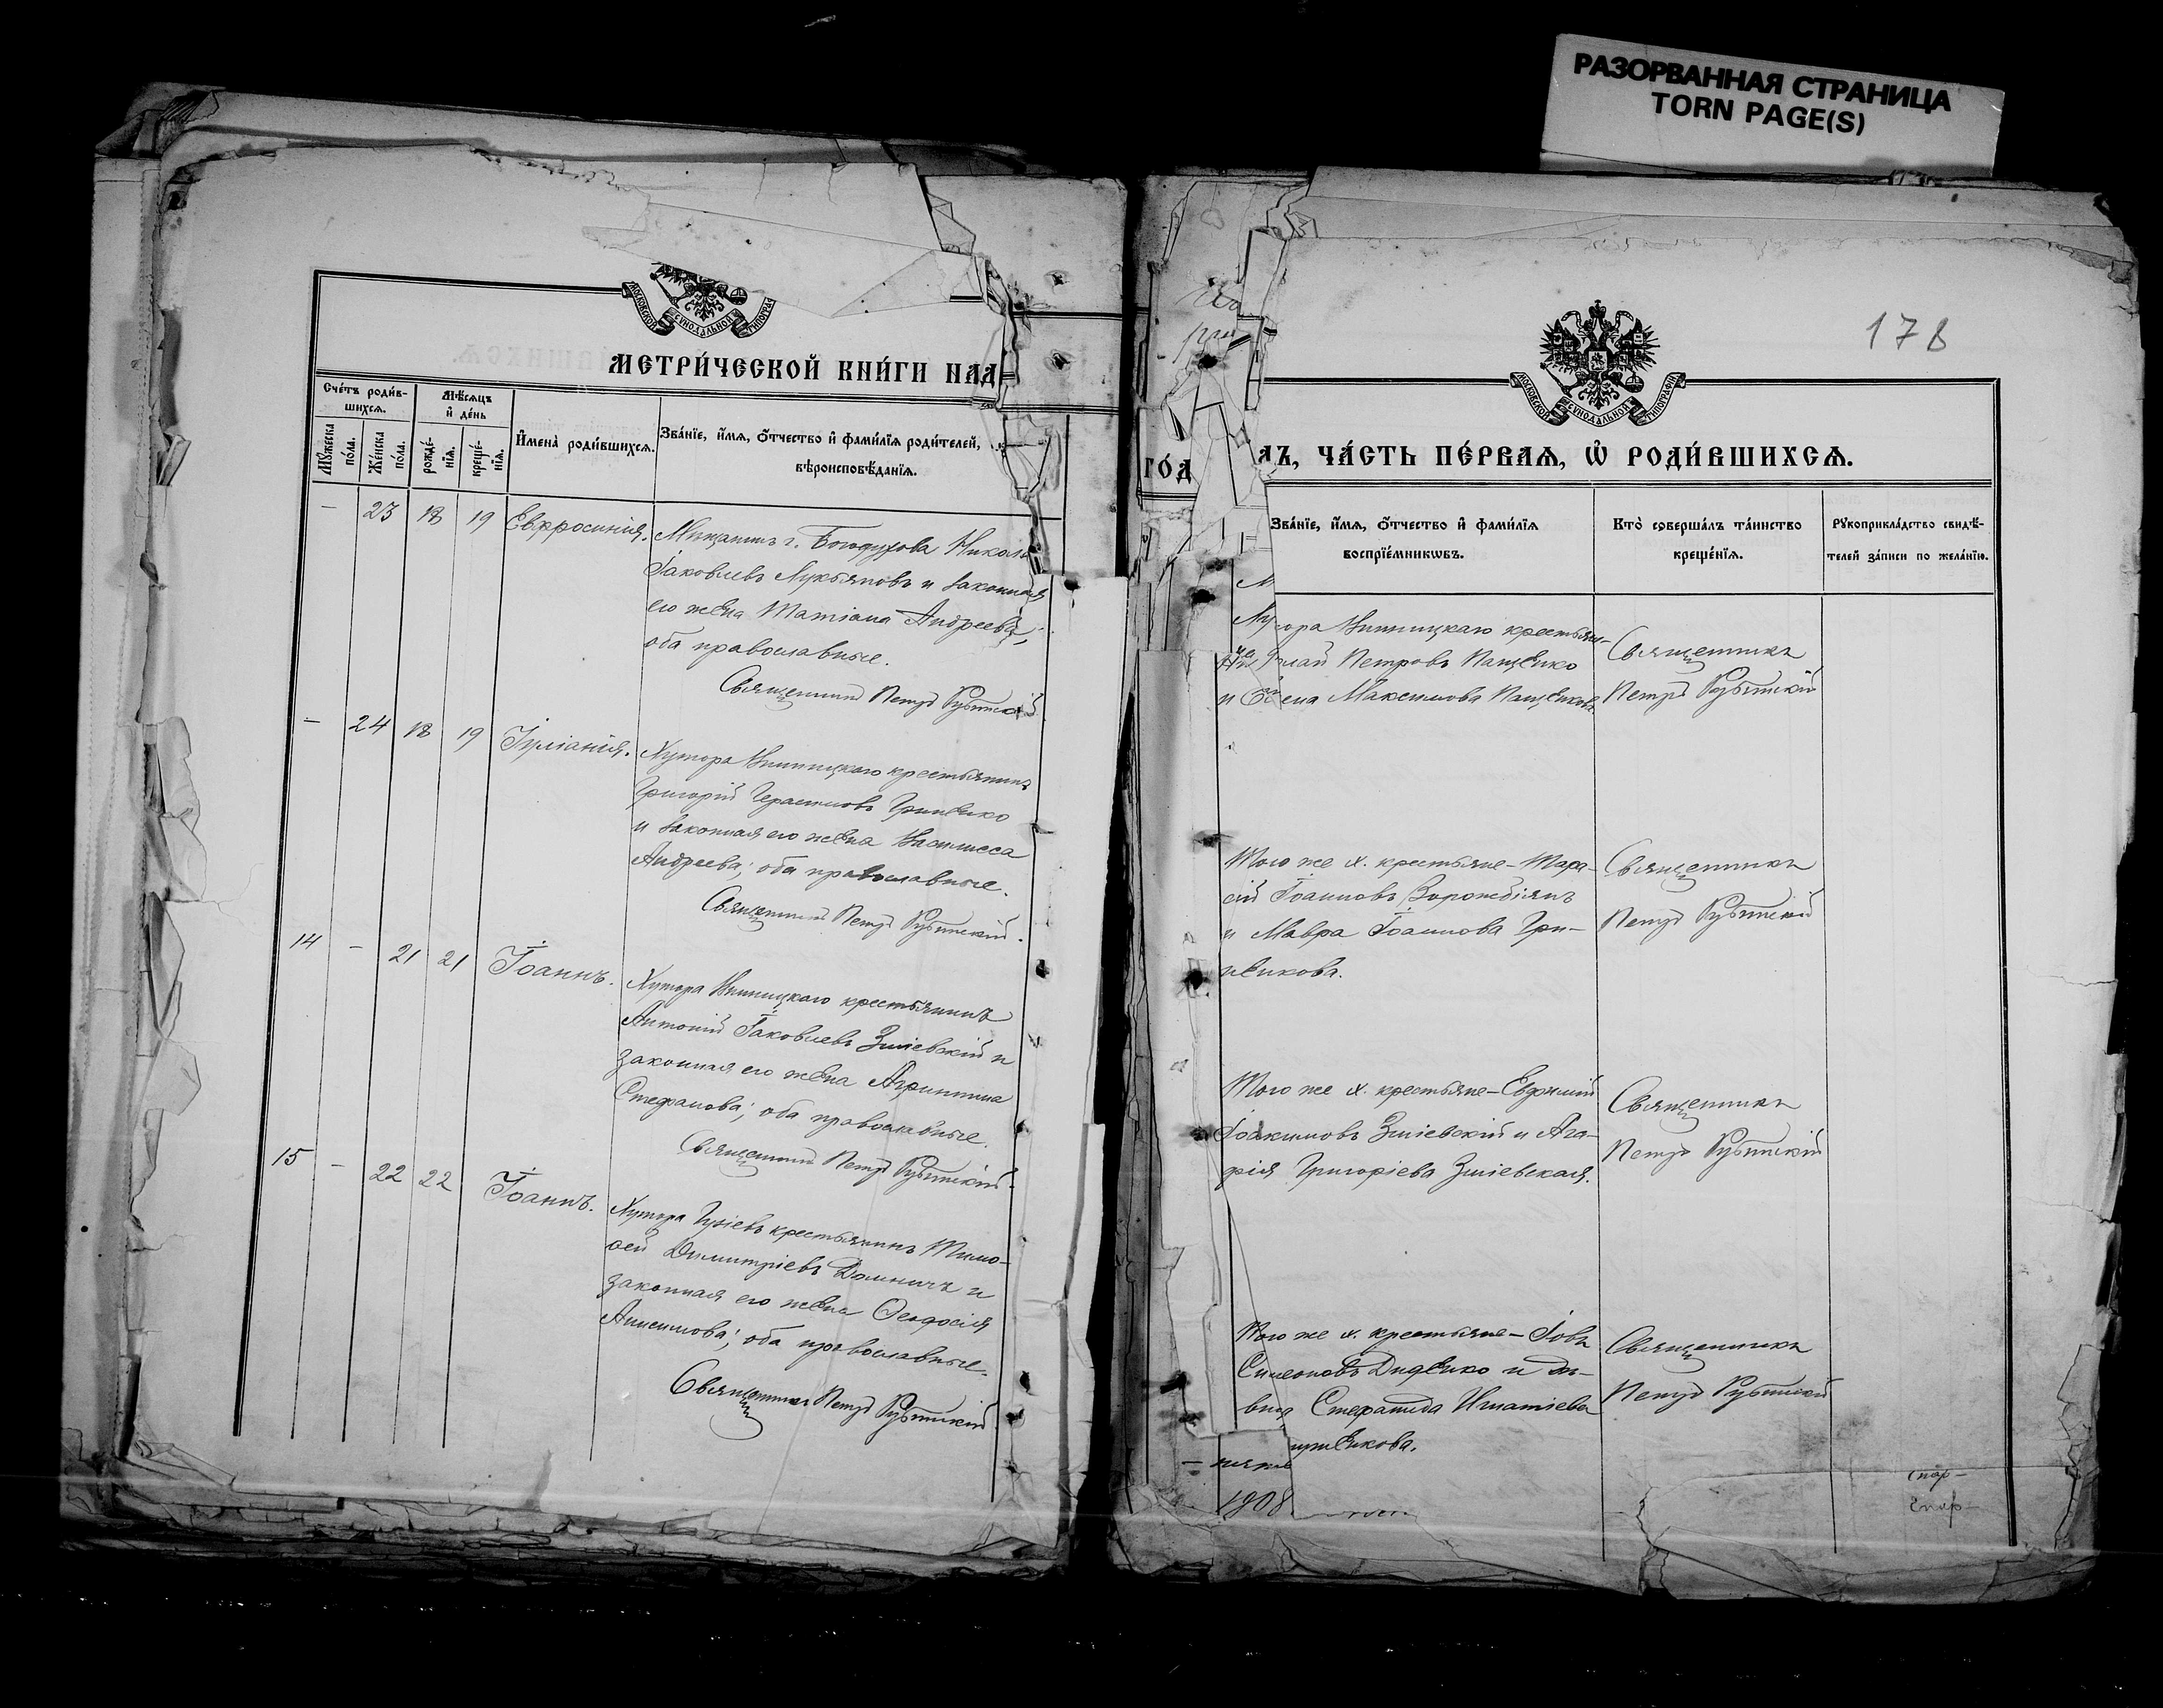 РАЗОРВАННАЯ СТРАНИЦА
TORN PAGE(S)
178
МОСКОВСКОЙ СУНОДАЛЬНОЙ ТИПОГРАФ
МЕТРИ́ЧЕСКОЙ КНИ́ГИ НА Д
Сче́тъ роди́в-
шихсѧ.
Мѣ́сѧцъ
и҆ де́нь
Мꙋ́жеска
по́ла.
Же́нска
по́ла.
рожде́-
нїѧ.
креще́-
нїѧ.
И҆мена̀ роди́вшихсѧ.
Зва́нїе, и҆́мѧ, ѻ҆́тчество и҆ фами́лїѧ роди́телей,
вѣроисповѣ́данїѧ.
– 23 18 19 Евфросинія. Мѣщанинъ г. Богодухова Никола
Іаковлевъ Лукьяновъ и законная
его жена Татіана Андреева;
оба православные.
Священникъ Петръ
– 24 18 19 Іуліанія. Хутора Винницкаго крестьянинъ
Григорій Герасимовъ Гриненко
и законная его жена Василисса
Андреева; оба православные.
Священникъ Петръ
14 – 21 21 Іоаннъ. Хутора Винницкаго крестьянинъ
Антоній Іаковлевъ Зміевскій и
законная его жена Агриппина
Стефанова; оба православные.
Священникъ Петръ
15 – 22 22 Іоаннъ. Хутора Гузіевъ крестьянинъ Тимо-
ѳей Димитріевъ и
законная его жена Ѳеодосія
Анисимова; оба православные.
Священникъ Петръ
МОСКОВСКОЙ СУНОДАЛЬНОЙ ТИПОГРАФІИ
ГО́Д А҆Ъ, ЧА́СТЬ ПЕ́РВАѦ, Ѽ РОДИ́ВШИХСѦ.
Зва́нїе, и҆́мѧ, ѻ҆́тчество и҆ фами́лїѧ
воспрїе́мникѡвъ.
Кто̀ соверша́лъ та́инство
креще́нїѧ.
Рꙋкоприкла́дство свидѣ́-
телей за́писи по жела́нїю.
Винницкаго крестьяни-
Петровъ Пащенко
и Максимова Пащенкова.
Священникъ
Петръ
Того же х. крестьяне – Тара-
сій Іоанновъ
и Мавра Іоаннова Гри-
ненкова.
Священникъ
Петръ
Того же х. крестьяне – Евфимій
Іоакимовъ Зміевскій и Ага-
фія Григоріева Зміевская.
Священникъ
Петръ
Того же х. крестьяне – Іовъ
Симеоновъ Диденко и дѣ-
вица Стефанида Игнатіева
Священникъ
Петръ
1908